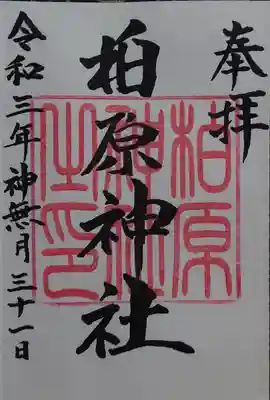 奉拝
柏原神社
令和三年神無月三十一日
柏原
神社
之印